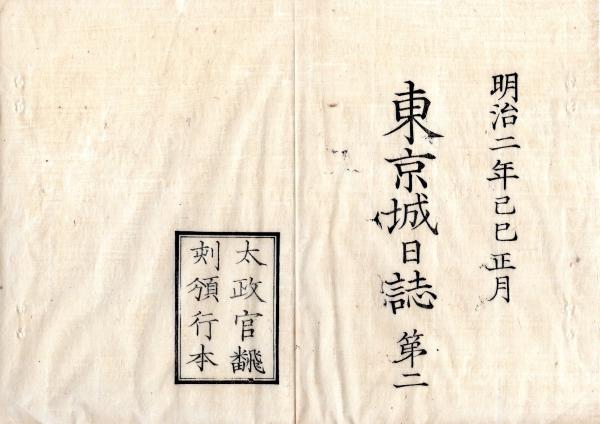 明治二年己巳正月
東京城日誌 第二
太政官飜
刻頒行本